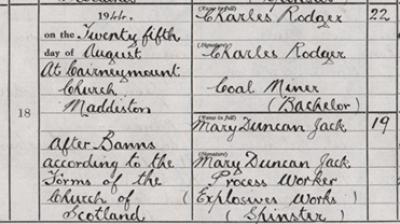 1944.
on the Twenty fifth
day of August
At Cairneymount
Church
Maddiston
After Banns
according to the
Forms of the
Church of
Scotland
18
(Name in full)
Charles Rodger
(Signature)
Charles Rodger
Coal Miner
(Bachelor)
22
(Name in full)
Mary Duncan Jack
(Signature)
Mary Duncan Jack
Process Worker
(Explosives Works)
(Spinster
19